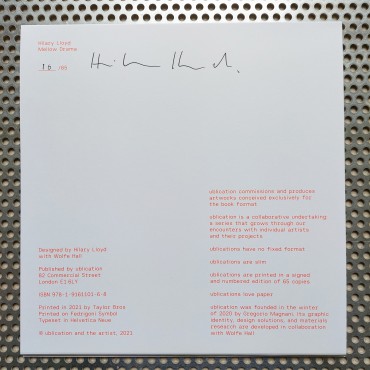 Hilary Lloyd
Mellow Drama
10 /65
ublication commissions and produces
artworks conceived exclusively for
the book format
ublication is a collaborative undertaking
a series that grows through our
encounters with individual artists
and their projects
ublications have no fixed format
ublications are slim
ublications are printed in a signed
and numbered edition of 65 copies
ublications love paper
ublication was founded in the winter
of 2020 by Gregorio Magnani, its graphic
identity, design solutions, and materials
research are developed in collaboration
with Wolfe Hall
Designed by Hilary Lloyd
with Wolfe Hall
Published by ublication
82 Commercial Street
London E1 6LY
Printed in 2021 by Taylor Bros
Printed on Fedrigoni Symbol
Typeset in Helvetica Neue
© ublication and the artist, 2021